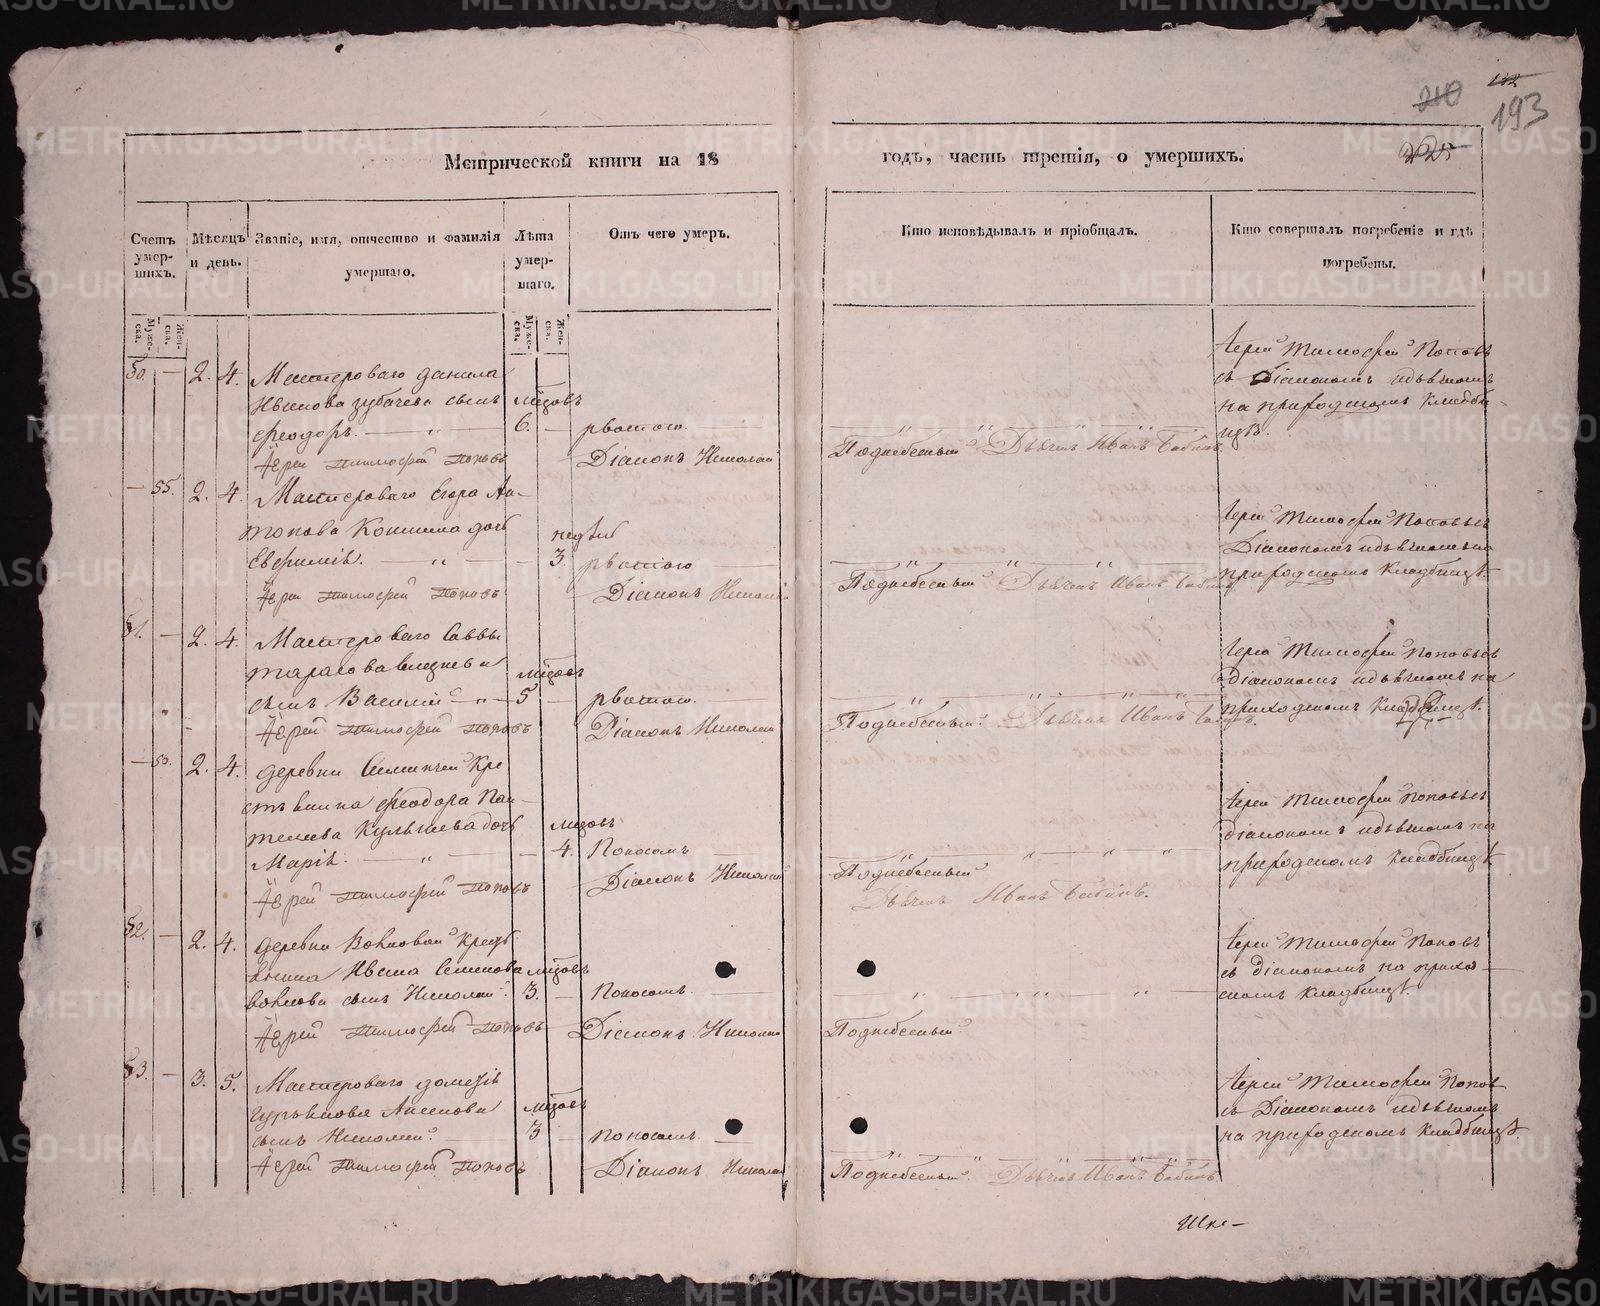 132
210
193
225
Метрической книги на 18
годъ, часть третія, о умершихъ.
Счетъ умер- шихъ.
Мѣсяцъ и день.
Званіе, имя, отчество и фамилія умершаго.
Лѣта умер- шаго.
Отъ чего умеръ.
Кто исповѣдывалъ и пріобщалъ.
Кто совершалъ погребеніе и гдѣ погребены.
Муже- ска.
Жен- ска.
Муже- ска.
Жен- ска.
50. — 2. 4. Мастероваго Данила
Иванова Зубачева сынъ
Феодоръ. — 6. — рвотою.
Іерей Тимофей Поповъ Діаконъ Николай Поднебесный Дьячекъ Иванъ Бабинъ.
Іерей Тимофей Поповъ
съ Діакономъ и дьячкомъ
на приходскомъ кладби-
щѣ.
— 55. 2. 4. Мастероваго Егора Ан-
типова Кокшина дочь
Евфимія. — 3. рвотою
Іерей Тимофей Поповъ Діаконъ Николай Поднебесный Дьячекъ Иванъ Бабинъ
Іерей Тимофей Поповъ съ
Діакономъ и дьячкомъ на
приходскомъ кладбищѣ.
51. — 2. 4. Мастероваго Саввы
Тарасова
сынъ Василій — 5 — рвотою.
Іерей Тимофей Поповъ Діаконъ Николай Поднебесный Дьячекъ Иванъ
Іерей Тимофей Поповъ съ
діакономъ и дьячкомъ на
приходскомъ кладбищѣ.
— 56. 2. 4. деревни Кре
стьянина Феодора Пан-
телеева дочь
Марія. — 4. Поносомъ
Іерей Тимофей Поповъ Діаконъ Николай Поднебесный
Дьячекъ Иванъ Бабинъ.
Іерей Тимофей Поповъ съ
діакономъ и дьячкомъ на
приходскомъ кладбищѣ
52. — 2. 4. деревни Волковой крестъ
янина Ивана Семенова
Волкова сынъ Николай. 3. — Поносомъ.
Іерей Тимофей Поповъ Діаконъ Николай Поднебесный
Іерей Тимофей Поповъ
съ діакономъ на приход—
скомъ кладбищѣ.
53. — 3. 5. Мастероваго
Гурьянова Аксенова
сынъ Николай. — 3 — поносомъ.
Іерей Тимофей Поповъ Діаконъ Николай Поднебесный Дьячекъ Иванъ Бабинъ.
Іерей Тимофей Поповъ
съ Діакономъ и дьячкомъ
на приходскомъ кладбищѣ.
METRIKI.GASO-URAL.RU